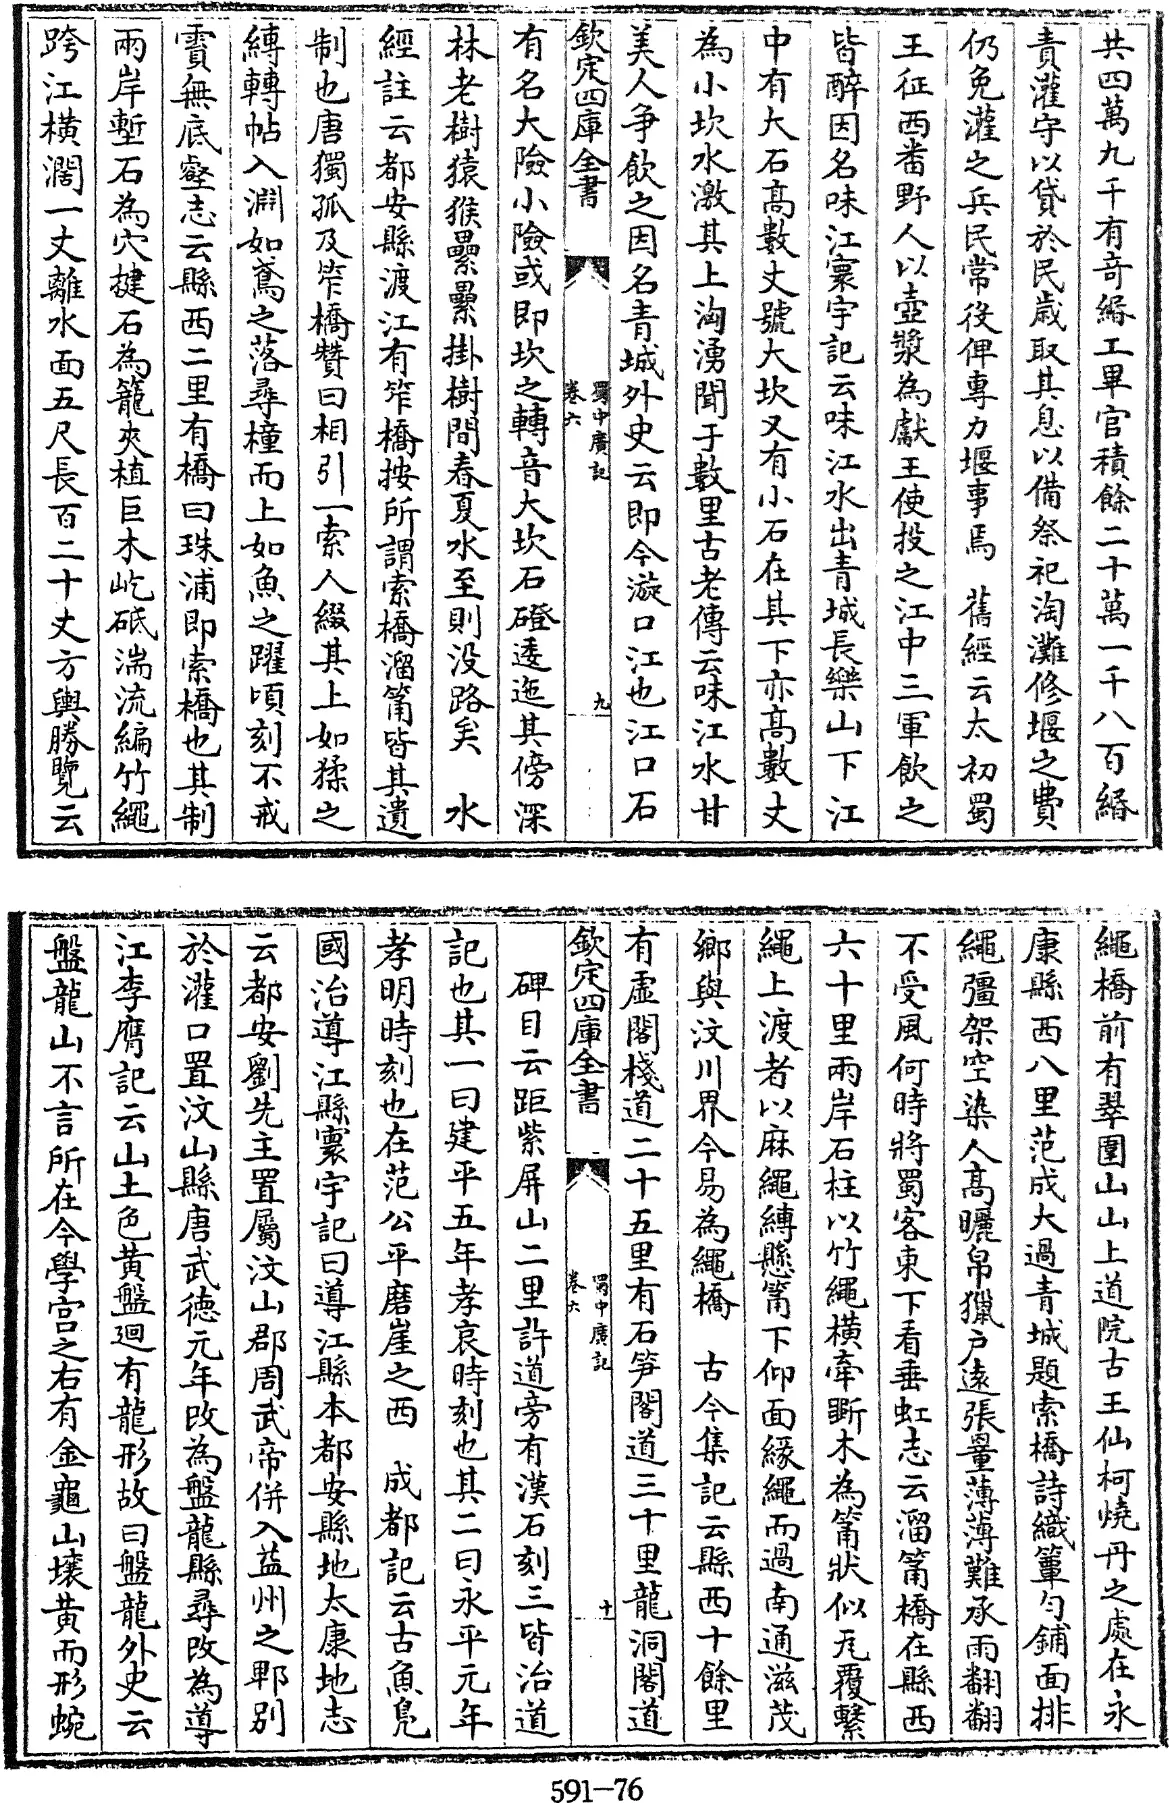 共四萬九千有奇緡工畢官積餘二十萬一千八百緡
責灌守以貸於民歲取其息以備祭祀淘灘修堰之費
仍免灌之兵民常役俾專力堰事焉　舊經云太初蜀
王征西畨野人以壺漿為獻王使投之江中三軍飲之
皆醉因名味江寰宇記云味江水出青城長樂山下江
中有大石高數丈號大坎又有小石在其下亦高數丈
為小坎水激其上洶湧聞于數里古老傳云味江水甘
美人爭飲之因名青城外史云即今漩口江也江口石
欽定四庫全書
蜀中廣記
卷六
九
有名大險小險或即坎之轉音大坎石磴逶迤其傍深
林老樹猿猴纍纍掛樹間春夏水至則没路矣　水
經註云都安縣渡江有笮橋按所謂索橋溜筩皆其遺
制也唐獨孤及笮橋贊曰相引一索人綴其上如猱之
縛轉帖入淵如鳶之落尋橦而上如魚之躍頃刻不戒
霣無底壑志云縣西二里有橋曰珠浦即索橋也其制
兩岸塹石為穴揵石為籠夾植巨木屹砥湍流編竹繩
跨江横濶一丈離水面五尺長百二十丈方輿勝覽云
繩橋前有翠圍山山上道院古王仙柯燒丹之處在永
康縣西八里范成大過青城題索橋詩織簟勻鋪面排
繩彊架空染人高曬帛獵戶遠張罿薄薄難承雨翻翻
不受風何時將蜀客東下看垂虹志云溜筩橋在縣西
六十里兩岸石柱以竹繩横牽斲木為筩狀似瓦覆繫
繩上渡者以麻繩縛懸筩下仰面緣繩而過南通滋茂
鄉與汶川界今易為繩橋　古今集記云縣西十餘里
有虛閣棧道二十五里有石笋閣道三十里龍洞閣道
欽定四庫全書
蜀中廣記
卷六
十
碑目云距紫屏山二里許道旁有漢石刻三皆治道
記也其一曰建平五年孝哀時刻也其二曰永平元年
孝明時刻也在范公平磨崖之西　成都記云古魚鳬
國治導江縣寰宇記曰導江縣本都安縣地太康地志
云都安劉先主置屬汶山郡周武帝併入益州之郫别
於灌口置汶山縣唐武德元年改為盤龍縣尋改為導
江李膺記云山土色黄盤迴有龍形故曰盤龍外史云
盤龍山不言所在今學宫之右有金龜山壤黄而形蜿
591-76